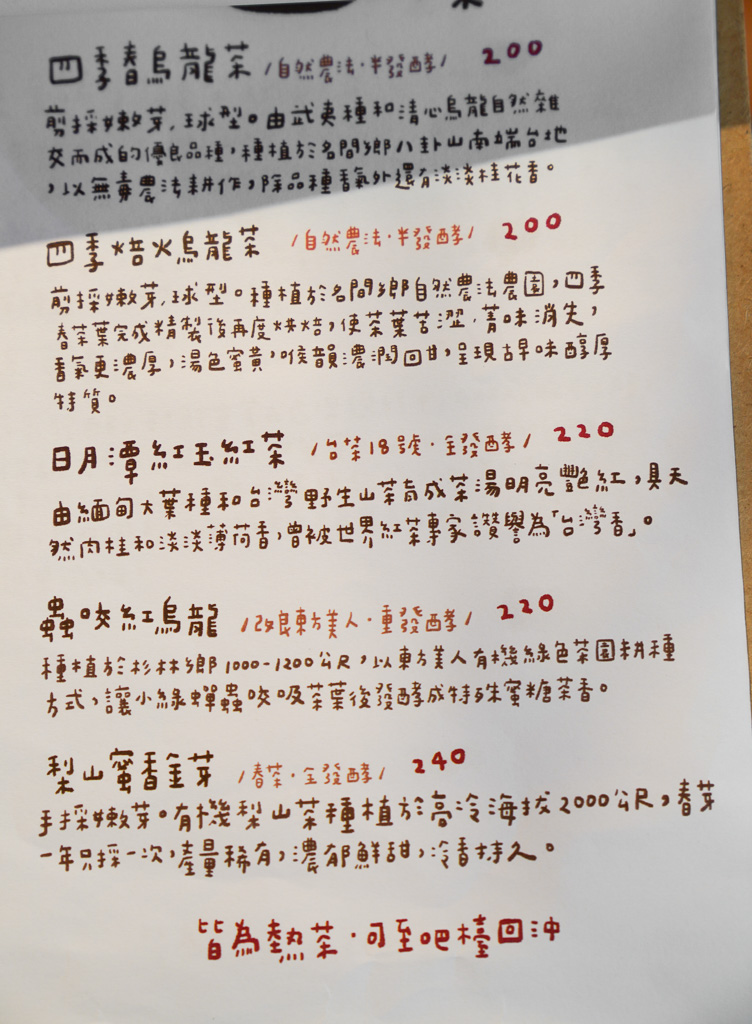 四季春烏龍茶 /自然農法·半發酵/ 200
剪採嫩芽,球型。由武夷種和清心烏龍自然雜
交而成的優良品種,種植於名間鄉八卦山南端台地
,以無毒農法耕作,除品種香氣外還有淡淡桂花香。
四季焙火烏龍茶 /自然農法·半發酵/ 200
剪採嫩芽,球型。種植於名間鄉自然農法農園,四季
春茶葉完成精製後再度烘焙,使茶葉苦澀、菁味消失,
香氣更濃厚,湯色蜜黃,喉韻濃潤回甘,呈現古早味醇厚
特質。
日月潭紅玉紅茶 /台茶18號·全發酵/ 220
由緬甸大葉種和台灣野生山茶育成茶湯明亮艷紅,具天
然肉桂和淡淡薄荷香,曾被世界紅茶專家讚譽為「台灣香」。
蟲咬紅烏龍 /改良東方美人·重發酵/ 220
種植於杉林鄉1000-1200公尺,以東方美人有機綠色茶園耕種
方式,讓小綠蟬蟲咬吸茶葉後發酵成特殊蜜糖茶香。
梨山蜜香金芽 /春茶·全發酵/ 240
手採嫩芽。有機梨山茶種植於高冷海拔2000公尺,春芽
一年只採一次,產量稀有,濃郁鮮甜,冷香持久。
皆為熱茶·可至吧檯回沖